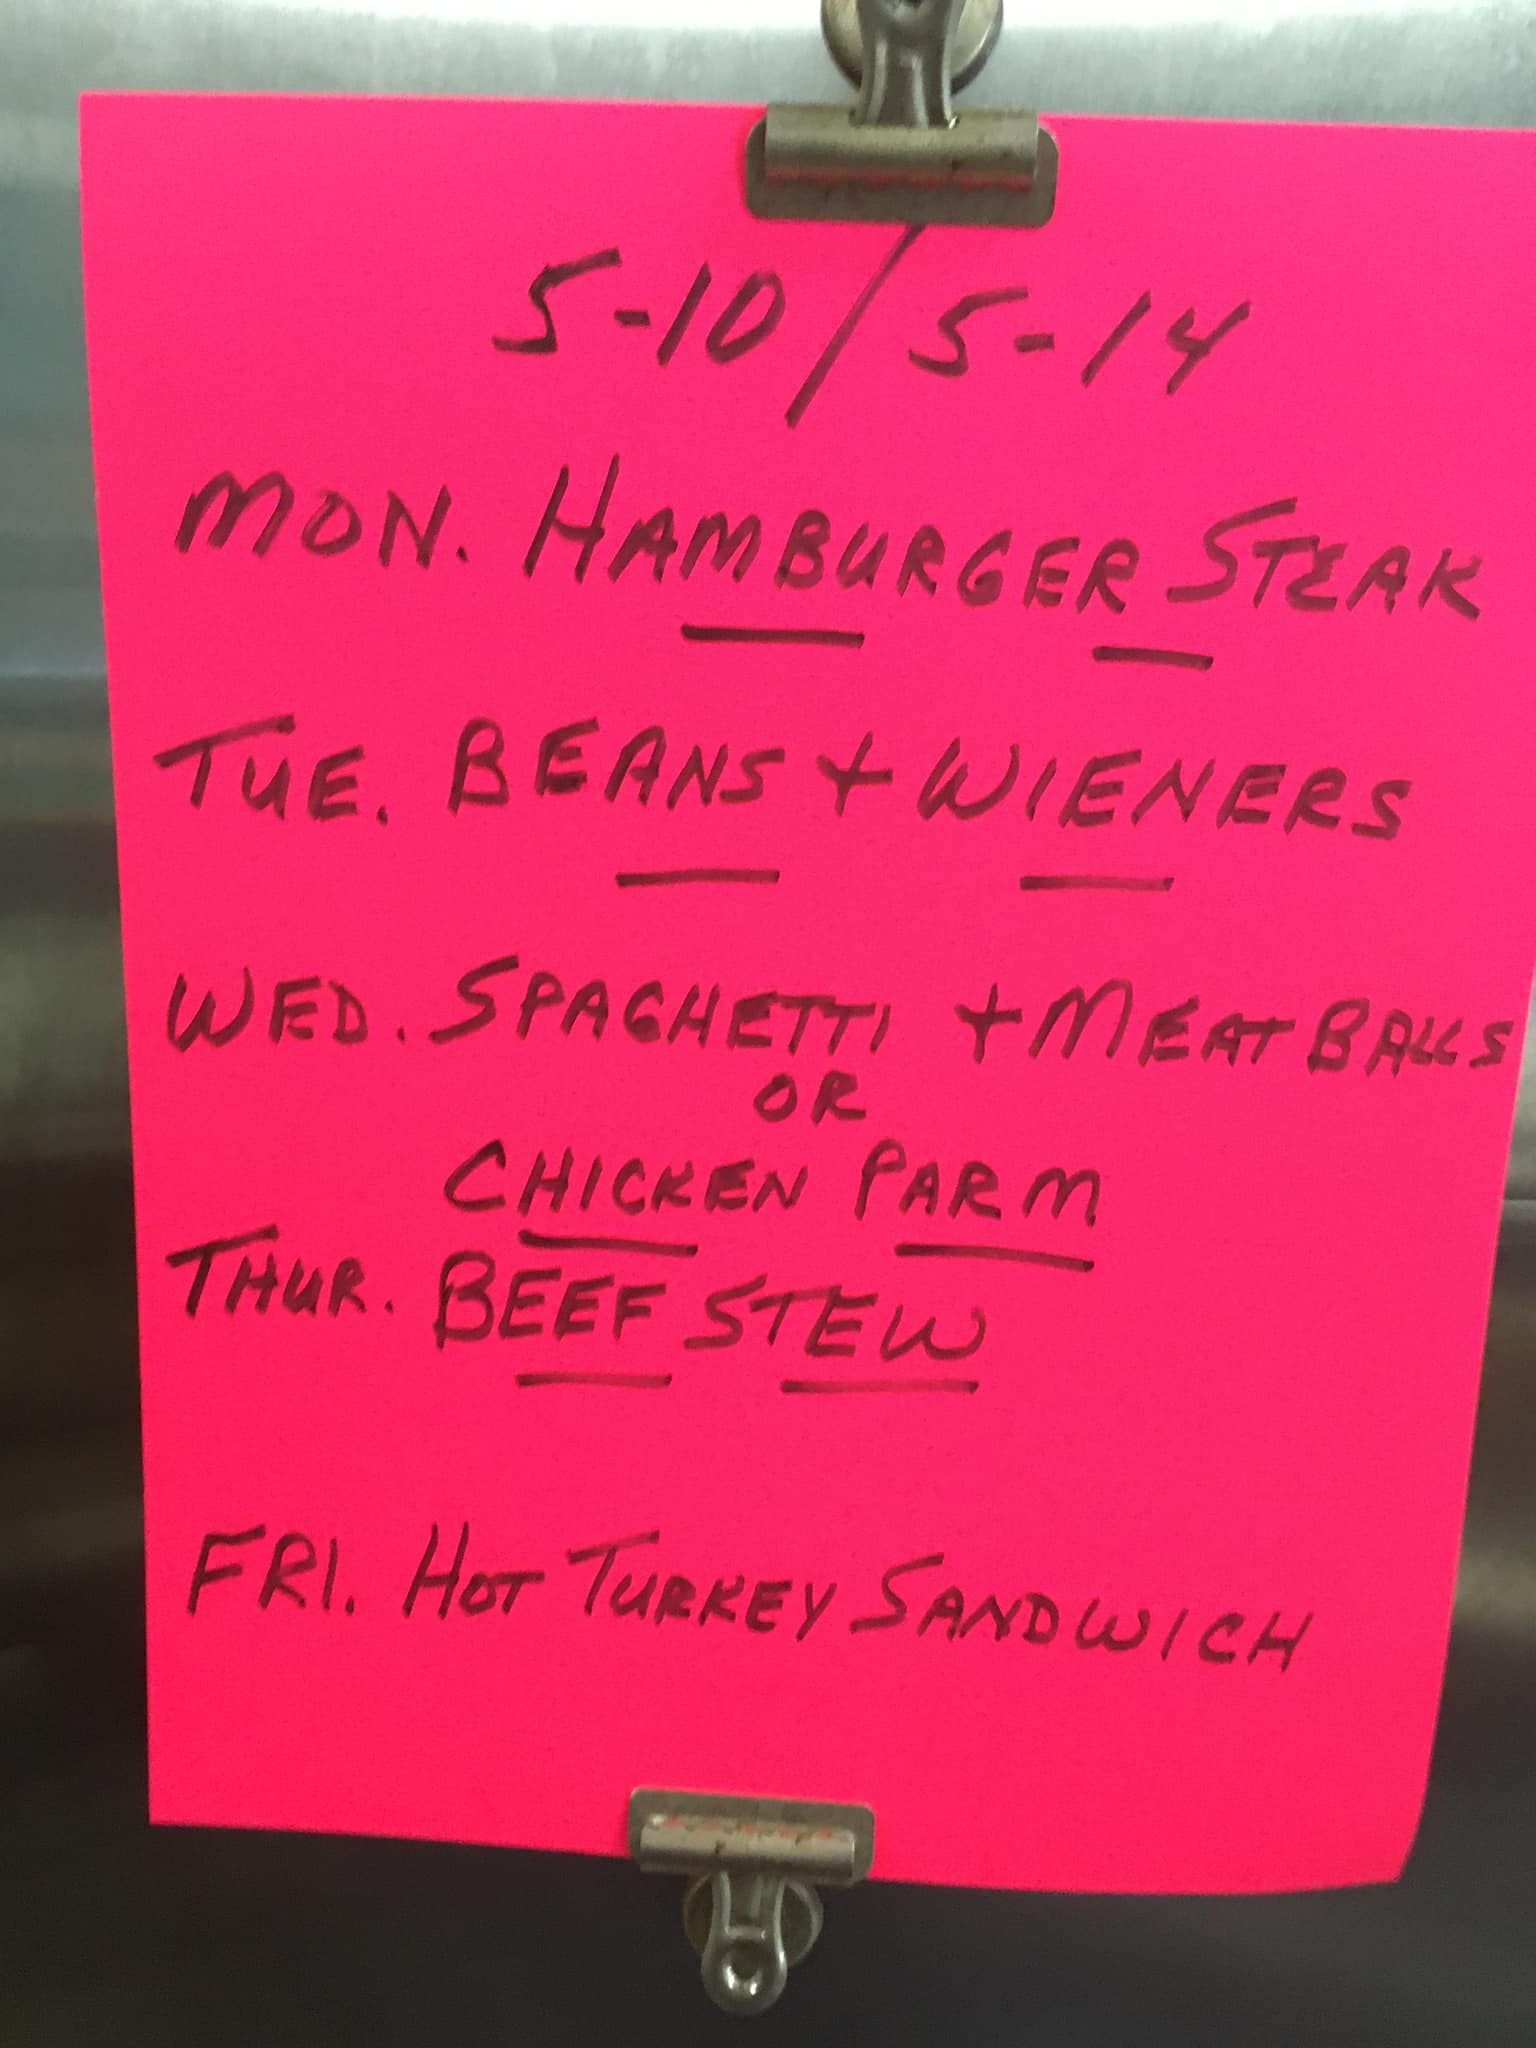 5-10/5-14
MON. HAMBURGER STEAK
TUE. BEANS + WIENERS
WED. SPAGHETTI + MEAT BALLS
OR
CHICKEN PARM
THUR. BEEF STEW
FRI. HOT TURKEY SANDWICH